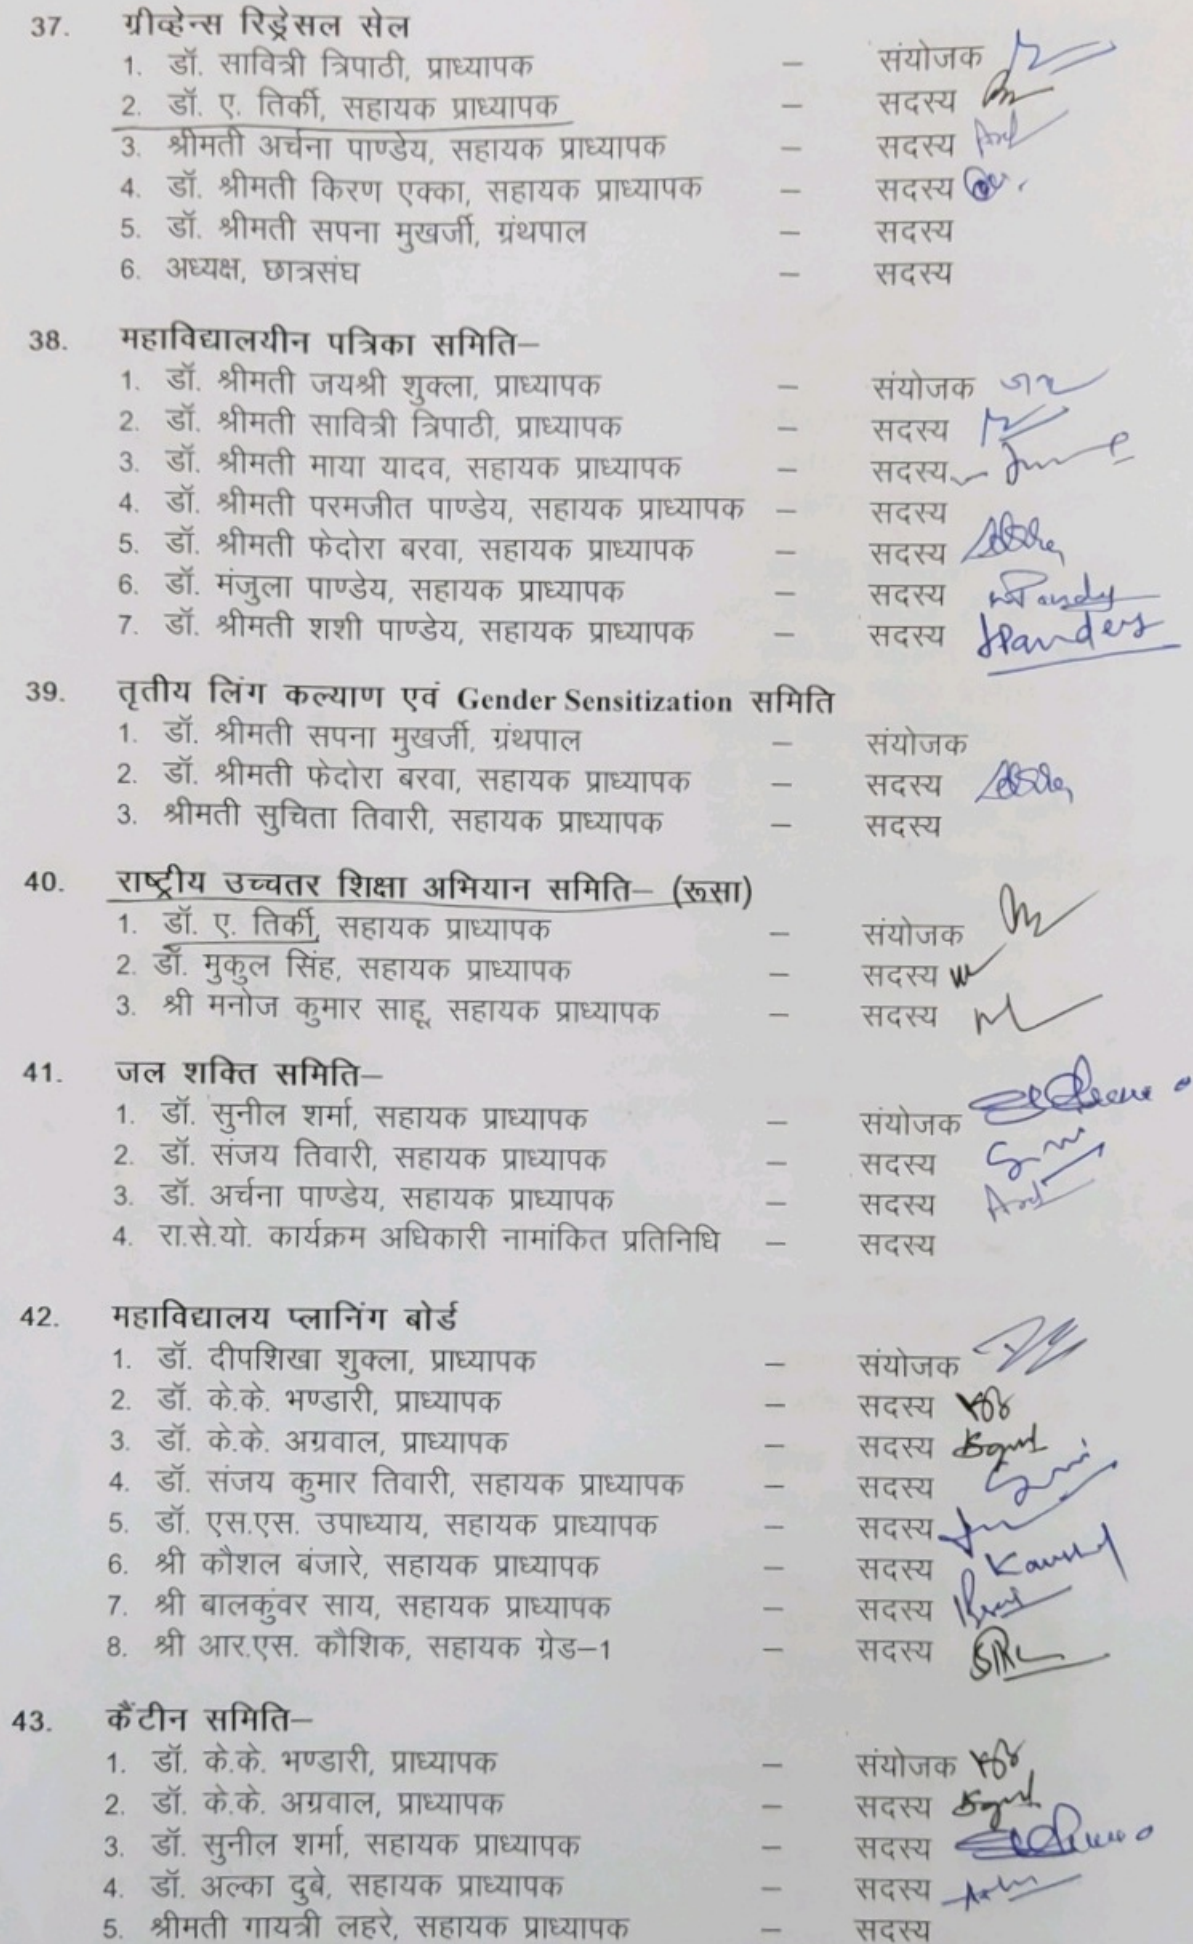 37. ग्रीव्हेन्स रिड्रेसल सेल
1. डॉ. सावित्री त्रिपाठी, प्राध्यापक – संयोजक
2. डॉ. ए. तिर्की, सहायक प्राध्यापक – सदस्य
3. श्रीमती अर्चना पाण्डेय, सहायक प्राध्यापक – सदस्य
4. डॉ. श्रीमती किरण एक्का, सहायक प्राध्यापक – सदस्य
5. डॉ. श्रीमती सपना मुखर्जी, ग्रंथपाल – सदस्य
6. अध्यक्ष, छात्रसंघ – सदस्य
38. महाविद्यालयीन पत्रिका समिति–
1. डॉ. श्रीमती जयश्री शुक्ला, प्राध्यापक – संयोजक
2. डॉ. श्रीमती सावित्री त्रिपाठी, प्राध्यापक – सदस्य
3. डॉ. श्रीमती माया यादव, सहायक प्राध्यापक – सदस्य
4. डॉ. श्रीमती परमजीत पाण्डेय, सहायक प्राध्यापक – सदस्य
5. डॉ. श्रीमती फेदोरा बरवा, सहायक प्राध्यापक – सदस्य
6. डॉ. मंजुला पाण्डेय, सहायक प्राध्यापक – सदस्य
7. डॉ. श्रीमती शशी पाण्डेय, सहायक प्राध्यापक – सदस्य
39. तृतीय लिंग कल्याण एवं Gender Sensitization समिति
1. डॉ. श्रीमती सपना मुखर्जी, ग्रंथपाल – संयोजक
2. डॉ. श्रीमती फेदोरा बरवा, सहायक प्राध्यापक – सदस्य
3. श्रीमती सुचिता तिवारी, सहायक प्राध्यापक – सदस्य
40. राष्ट्रीय उच्चतर शिक्षा अभियान समिति– (रूसा)
1. डॉ. ए. तिर्की, सहायक प्राध्यापक – संयोजक
2. डॉ. मुकुल सिंह, सहायक प्राध्यापक – सदस्य
3. श्री मनोज कुमार साहू, सहायक प्राध्यापक – सदस्य
41. जल शक्ति समिति–
1. डॉ. सुनील शर्मा, सहायक प्राध्यापक – संयोजक
2. डॉ. संजय तिवारी, सहायक प्राध्यापक – सदस्य
3. डॉ. अर्चना पाण्डेय, सहायक प्राध्यापक – सदस्य
4. रा.से.यो. कार्यक्रम अधिकारी नामांकित प्रतिनिधि – सदस्य
42. महाविद्यालय प्लानिंग बोर्ड
1. डॉ. दीपशिखा शुक्ला, प्राध्यापक – संयोजक
2. डॉ. के.के. भण्डारी, प्राध्यापक – सदस्य
3. डॉ. के.के. अग्रवाल, प्राध्यापक – सदस्य
4. डॉ. संजय कुमार तिवारी, सहायक प्राध्यापक – सदस्य
5. डॉ. एस.एस. उपाध्याय, सहायक प्राध्यापक – सदस्य
6. श्री कौशल बंजारे, सहायक प्राध्यापक – सदस्य
7. श्री बालकुंवर साय, सहायक प्राध्यापक – सदस्य
8. श्री आर.एस. कौशिक, सहायक ग्रेड–1 – सदस्य
43. कैंटीन समिति–
1. डॉ. के.के. भण्डारी, प्राध्यापक – संयोजक
2. डॉ. के.के. अग्रवाल, प्राध्यापक – सदस्य
3. डॉ. सुनील शर्मा, सहायक प्राध्यापक – सदस्य
4. डॉ. अल्का दुबे, सहायक प्राध्यापक – सदस्य
5. श्रीमती गायत्री लहरे, सहायक प्राध्यापक – सदस्य